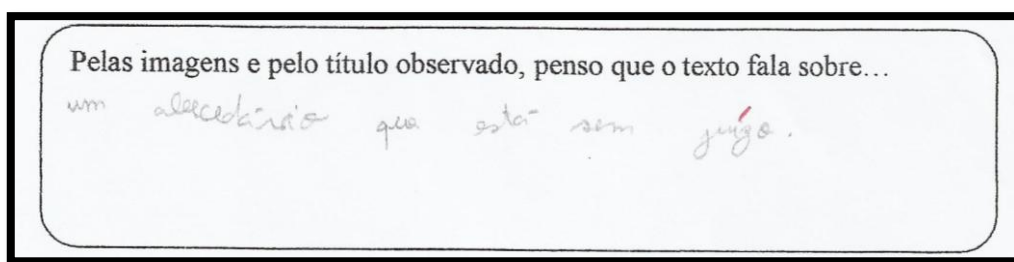 Pelas imagens e pelo título observado, penso que o texto fala sobre…
um abecedário que está sem juízo.